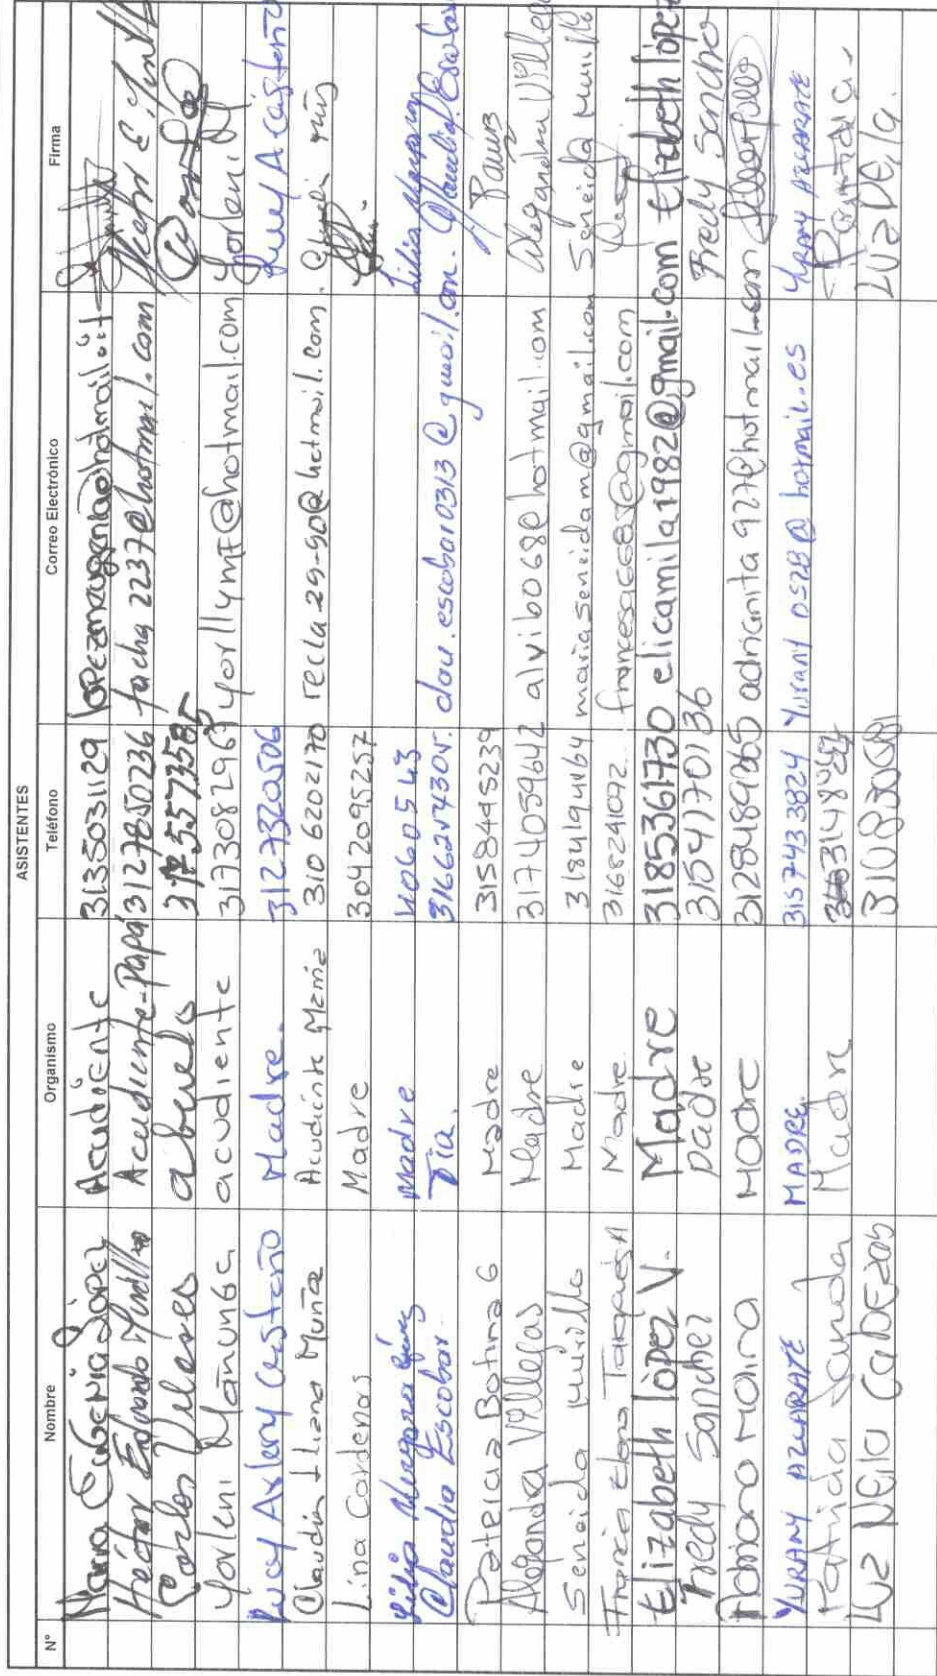 ASISTENTES
N° Nombre Organismo Teléfono Correo Electrónico Firma
María Eugenia López Acudiente 3135031129
Héctor Eduardo Murillo Acudiente-Papá 3127850736 tacha2237@hotmail.com
Carlos abuelo
Yorleni Mañunga acudiente 3173082963 yorllymf@hotmail.com Yorleni
Lucy Arleny Castaño Madre. 3127320506 Lucy A Castaño
Claudia Liana Muñoz Acudiente Mamá 3106202170 recla.29-90@hotmail.com.
Lina Cardenas Madre 3042095257
Lilia Madre 40660543 Lilia
Claudia Escobar. Tia. 3166254305. clau.escobar0313@gmail.com. Claudia Escobar
Patricia Botina G Madre 3158445239
Alejandra Villegas Madre 3174059642 alvibo068@hotmail.com Alejandra Villegas
Seneida Murillo Madre 3184194464 mariaseneidam@gmail.com Seneida Murillo
Francia Elena Madre 3168241092
Elizabeth lòpez V. Madre 3185361730 elicamila1982@gmail.com Elizabeth lòpez
Fredy Sanchez padre 3154170136 Fredy Sancho
Adriana Molina MADRE 3128489265 adrianita927@hotmail.com
YURANY AZCARATE MADRE. 3157433824 Yurany0528@hotmail.es YURANY AZCARATE
Patricia Madre Patricia
LUZ NEIla CabEzas 3108830681 LUZ NEIla